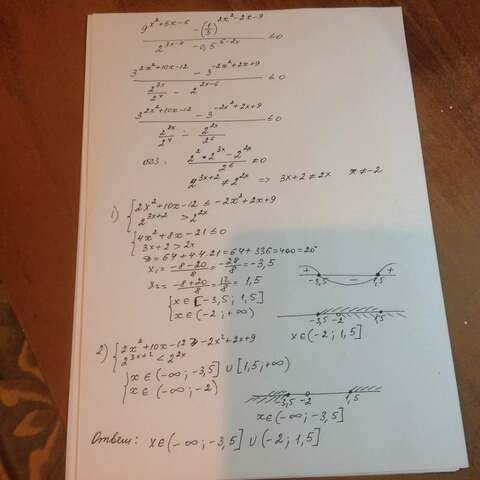 (9^(x²+5x-6) - (1/3)^(2x²-2x-9)) / (2^(3x-4) - 0,5^(6-2x)) ≤ 0
(3^(2x²+10x-12) - 3^(-2x²+2x+9)) / (2^(3x)/2^4 - 2^(2x-6)) ≤ 0
(3^(2x²+10x-12) - 3^(-2x²+2x+9)) / (2^(3x)/2^4 - 2^(2x)/2^6) ≤ 0
ОДЗ: (2² · 2^(3x) - 2^(2x)) / 2^6 ≠ 0
2^(3x+2) ≠ 2^(2x) => 3x+2 ≠ 2x x ≠ -2
1) { 2x²+10x-12 ≤ -2x²+2x+9
2^(3x+2) > 2^(2x)
{ 4x²+8x-21 ≤ 0
3x+2 > 2x
D = 64+4·4·21 = 64+336 = 400 = 20²
x₁ = (-8-20)/8 = -28/8 = -3,5
+ - +
-3,5 1,5
x₂ = (-8+20)/8 = 12/8 = 1,5
{ x ∈ [-3,5; 1,5]
x ∈ (-2; +∞)
-3,5 -2 1,5
x ∈ (-2; 1,5]
2) { 2x²+10x-12 ≥ -2x²+2x+9
2^(3x+2) < 2^(2x)
{ x ∈ (-∞; -3,5] ∪ [1,5; +∞)
x ∈ (-∞; -2)
-3,5 -2 1,5
x ∈ (-∞; -3,5]
Ответ: x ∈ (-∞; -3,5] ∪ (-2; 1,5]